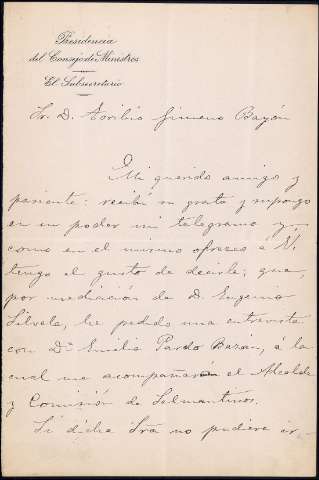 Presidencia
del Consejo de Ministros
El Subsecretario
Sr. D. Toribio Gimeno Bayón
Mi querido amigo y
pariente: recibí su grata y supongo
en su poder mi telegrama y,
como en el mismo ofrezco á V.
tengo el gusto de decirle; que,
por mediación de D. Eugenio
Silvela, he pedido una entrevista
con Dª Emilia Pardo Bazan, á la
cual me acompañaran el Alcalde
y Comisión de Salmantinos.
Si dicha Sra no pudiera ir